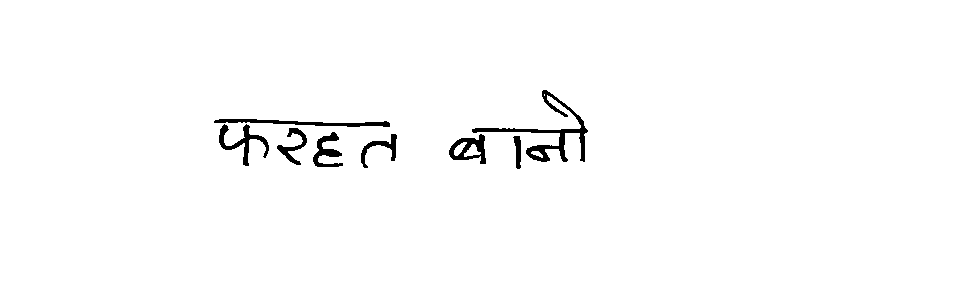 फरहत बानो